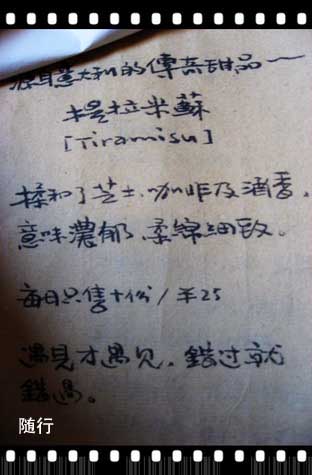 源自意大利的傳奇甜品一
提拉米蘇
[Tiramisu]
揉和了芝士、咖啡及酒香,
意味濃郁、柔綿細致。
每日只售十份/¥25
遇見才遇见,錯过就
錯過。
随行